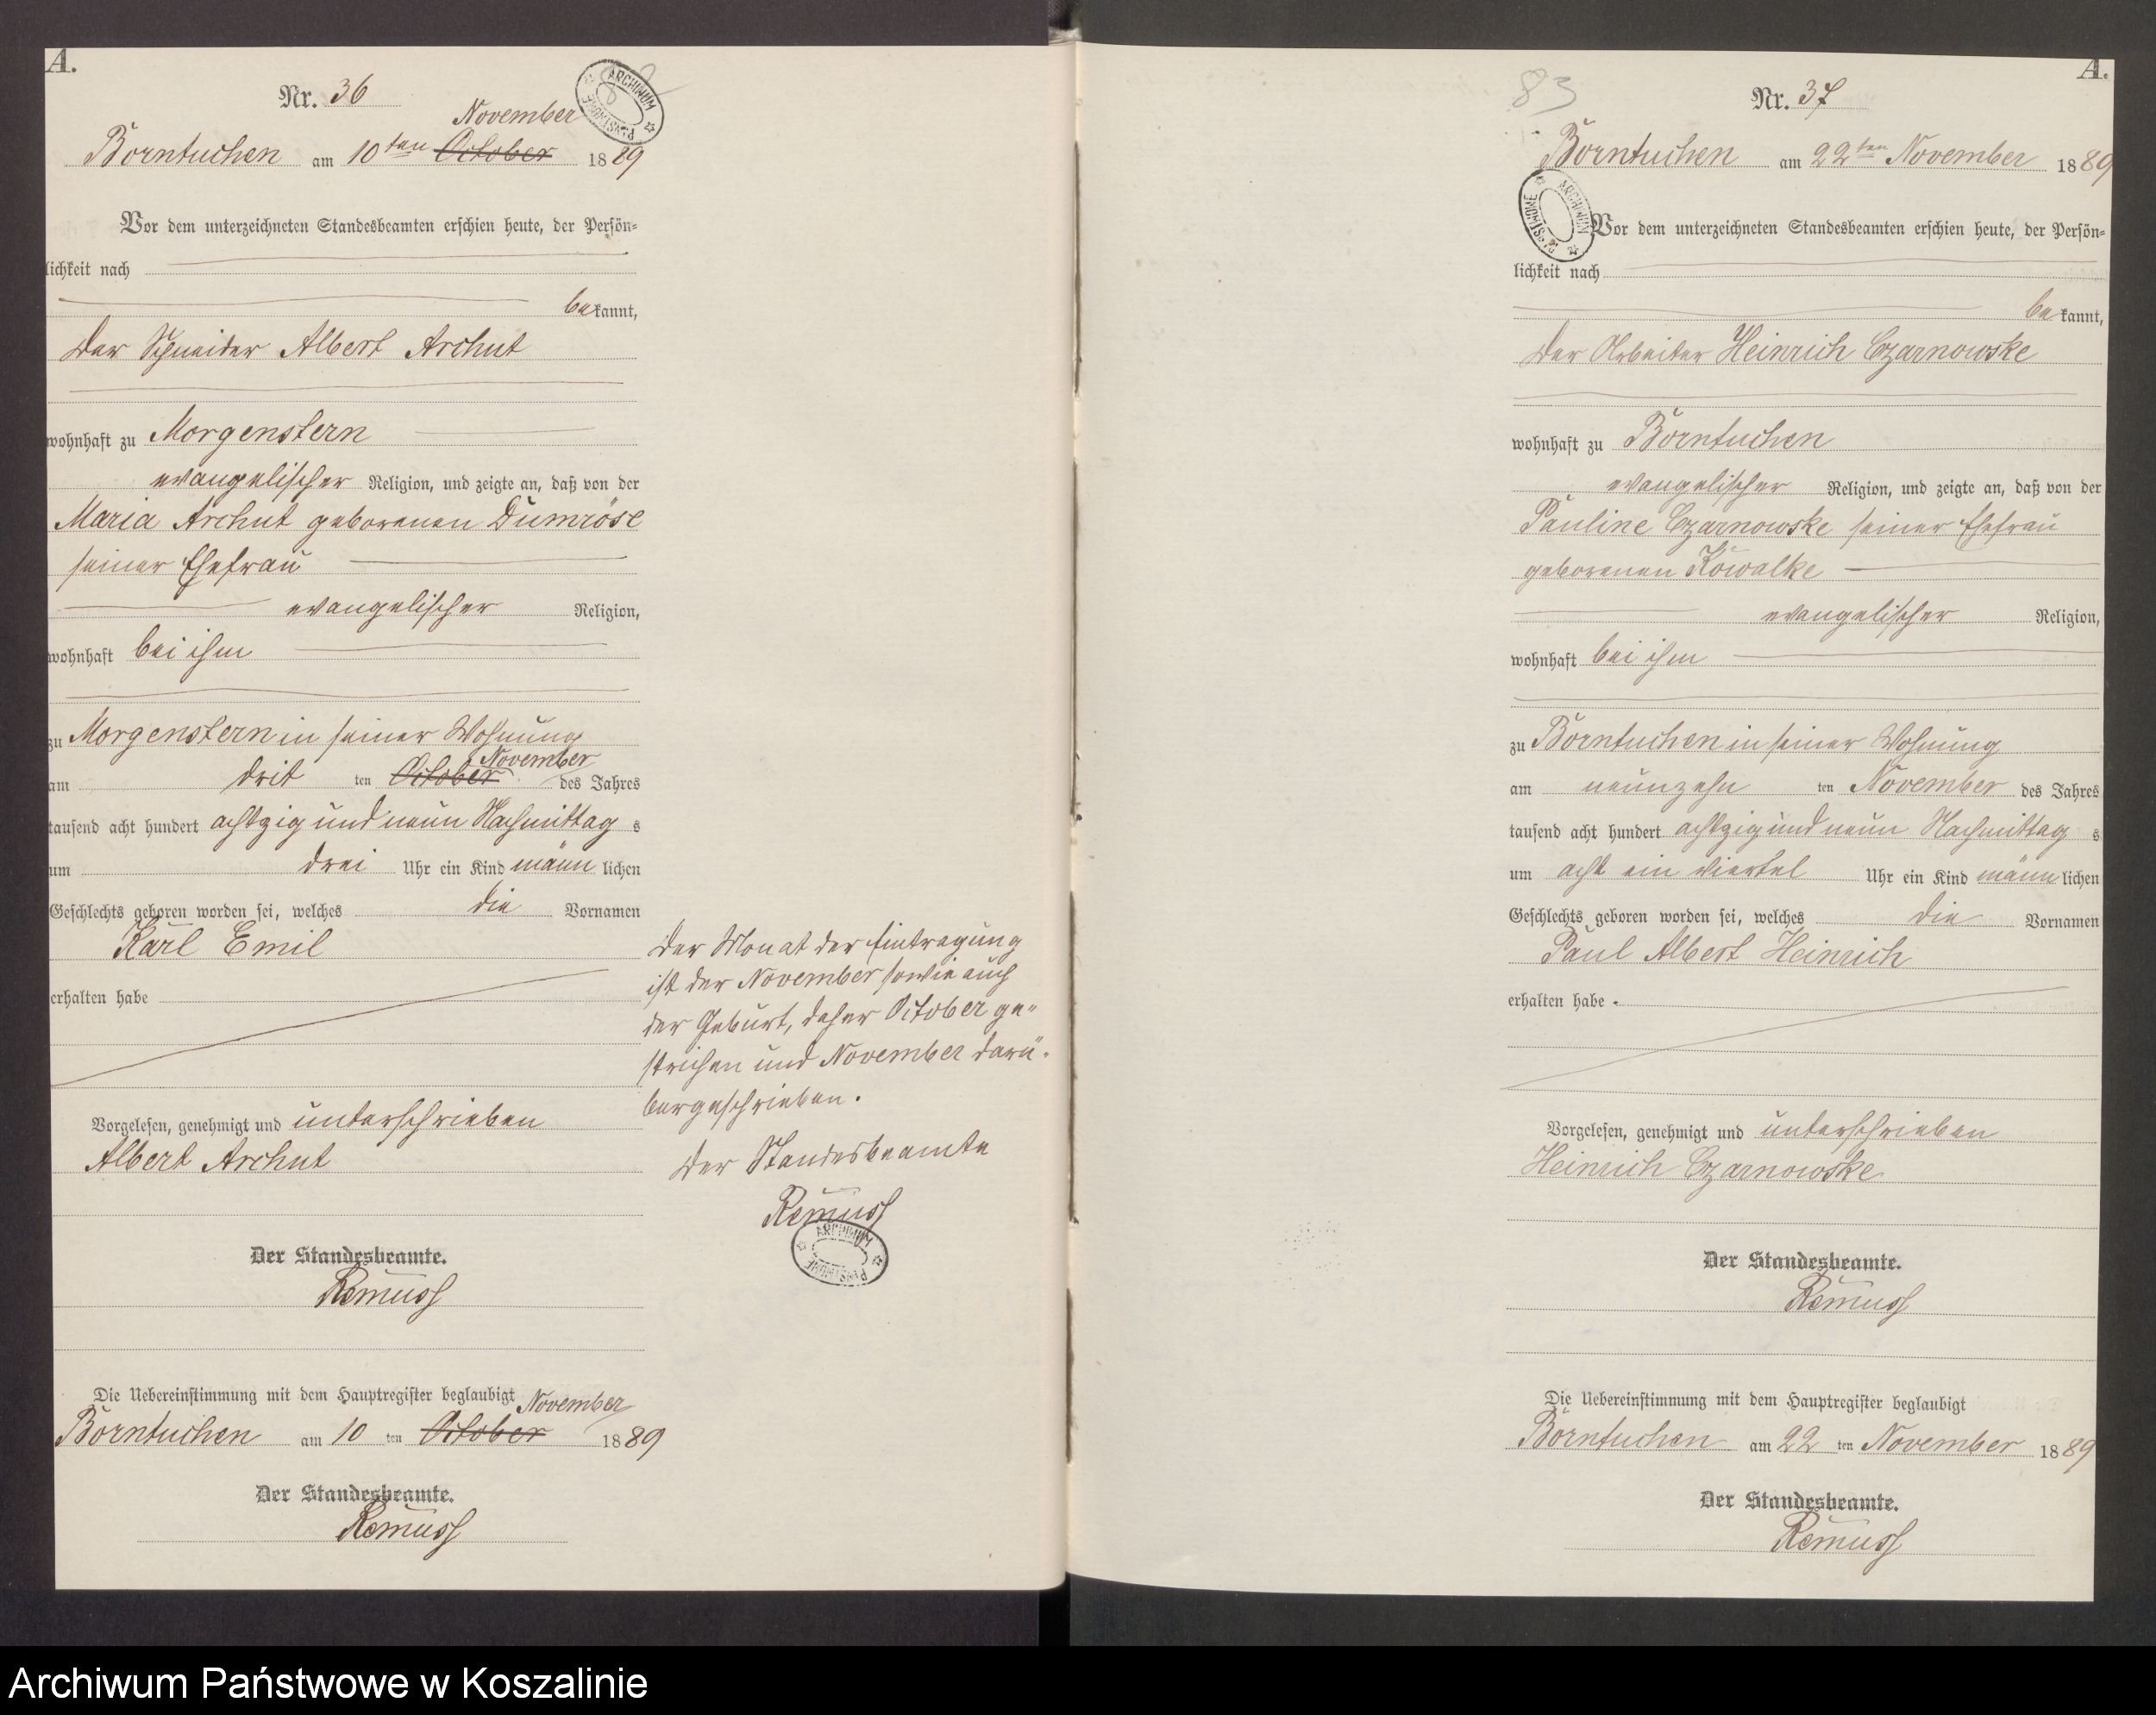 A.
Nr. 36
November
Borntuchen am 10ten October 1889
Vor dem unterzeichneten Standesbeamten erschien heute, der Persön-
lichkeit nach
bekannt,
Der Schneider Albert Archut
wohnhaft zu Morgenstern
evangelischer Religion, und zeigte an, daß von der
Maria Archut geborenen Dumröse
seiner Ehefrau
evangelischer Religion,
wohnhaft bei ihm
zu Morgenstern in seiner Wohnung
November
am drit ten October des Jahres
tausend acht hundert achtzig und neun Nachmittag s
um drei Uhr ein Kind männ lichen
Geschlechts geboren worden sei, welches die Vornamen
Karl Emil
erhalten habe
Vorgelesen, genehmigt und unterschrieben
Albert Archut
Der Standesbeamte.
Remuss
Die Uebereinstimmung mit dem Hauptregister beglaubigt
November
Borntuchen am 10 ten October 1889
Der Standesbeamte.
Remuss
Der Monat der Eintragung
ist der November sowie auch
der Geburt, daher October ge-
strichen und November darü-
bergeschrieben.
Der Standesbeamte
Remuss
ARCHIWUM PAŃSTWOWE
ARCHIWUM PAŃSTWOWE
A.
83
Nr. 37
Borntuchen am 22ten November 1889
ARCHIWUM PAŃSTWOWE
Vor dem unterzeichneten Standesbeamten erschien heute, der Persön-
lichkeit nach
bekannt,
Der Arbeiter Heinrich Czarnowske
wohnhaft zu Borntuchen
evangelischer Religion, und zeigte an, daß von der
Pauline Czarnowske seiner Ehefrau
geborenen Kowalke
evangelischer Religion,
wohnhaft bei ihm
zu Borntuchen in seiner Wohnung
am neunzehn ten November des Jahres
tausend acht hundert achtzig und neun Nachmittag s
um acht ein viertel Uhr ein Kind männ lichen
Geschlechts geboren worden sei, welches die Vornamen
Paul Albert Heinrich
erhalten habe.
Vorgelesen, genehmigt und unterschrieben
Heinrich Czarnowske
Der Standesbeamte.
Remuss
Die Uebereinstimmung mit dem Hauptregister beglaubigt
Borntuchen am 22 ten November 1889
Der Standesbeamte.
Remuss
Archiwum Państwowe w Koszalinie